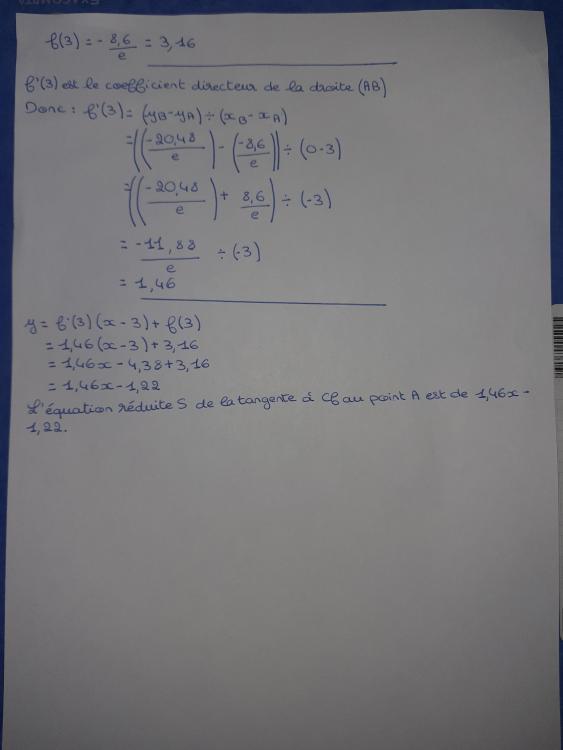 f(3) = - 8,6 / e = 3,16
f'(3) est le coefficient directeur de la droite (AB)
Donc : f'(3) = (yB - yA) ÷ (xB - xA)
= ((-20,48 / e) - (-8,6 / e)) ÷ (0-3)
= ((-20,48 / e) + 8,6 / e) ÷ (-3)
= -11,88 / e ÷ (-3)
= 1,46
y = f'(3) (x - 3) + f(3)
= 1,46 (x - 3) + 3,16
= 1,46x - 4,38 + 3,16
= 1,46x - 1,22
L'équation réduite S de la tangente à Cf au point A est de 1,46x -
1,22.